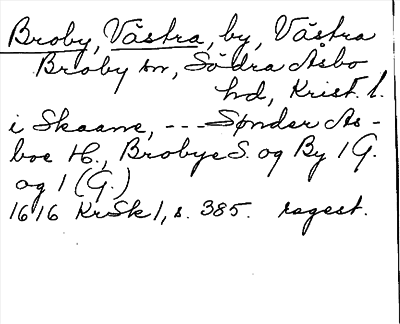 Broby, Västra, by, Västra
Broby sn, Södra Åsbo
hd, Krist. l.
i Skaane, --- Sønder As-
boe H., Brobye S. og By 1 G.
og 1 (G.)
1616 KrSk 1, s. 385. ragest.